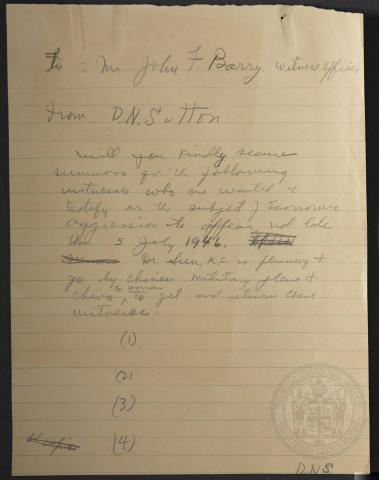 To: Mr John F Barry witness officer
From D.N. Sutton
Will you kindly secure
summons for the following
witnesses who are wanted to
testify on the subject of Economic
aggression to appear not later
than 5 July 1946.
Dr. Sun, K.C. is planning to
go by Chinese military plane to
China tomorrow to get and return these
witnesses.
(1)
(2)
(3)
(4)
D.N.S.